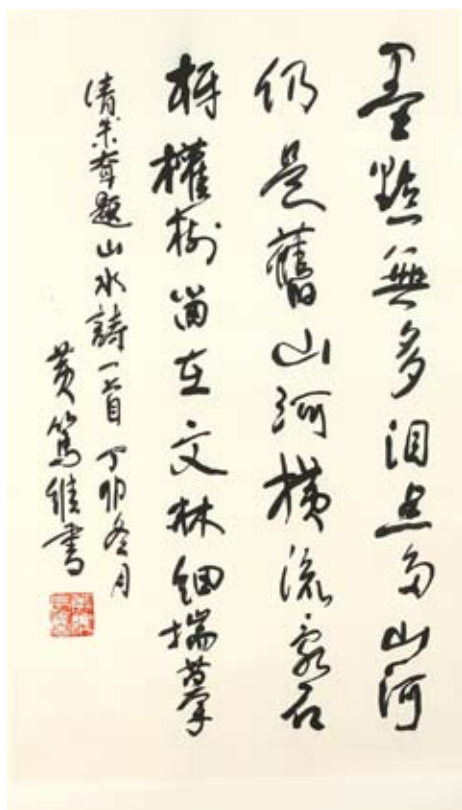 墨點無多泪点多山河
仍是舊山河横流亂石
枒權樹畄在文林細揣摹
清朱耷題山水詩一首 丁卯冬月
黄篤維書